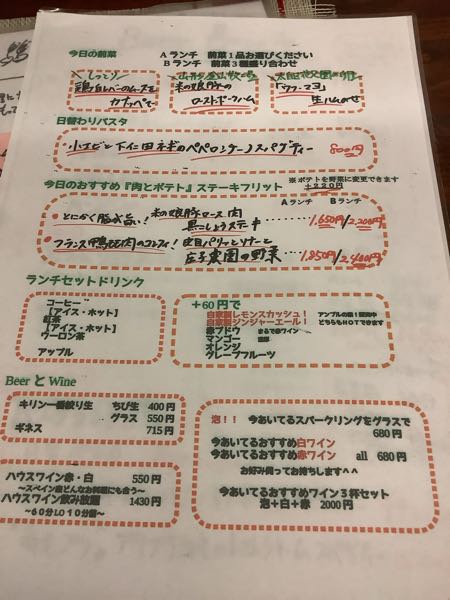 今日の前菜
Aランチ 前菜1品お選びください
Bランチ 前菜3種盛り合わせ
しっとり
鶏白レバーのムースを
カナッペで
山形金山牧場
米の娘豚の
ローストポークハム
太田牧園の卵
「ウフ・マヨ」
生ハムのせ
日替わりパスタ
・小エビと下仁田ネギのペペロンチーノスパゲティー 800円
今日のおすすめ『肉とポテト』ステーキフリット
※ポテトを野菜に変更できます
+220円
Aランチ Bランチ
・とにかく脂が旨い!米の娘豚ロース肉
黒こしょうステーキ……1,650円/2,200円
・フランス鴨もも肉のコンフィ!皮目パリッとソテーと
庄子農園の野菜……1,850円/2,400円
ランチセットドリンク
コーヒー
【アイス・ホット】
紅茶
【アイス・ホット】
ウーロン茶
アップル
+60円で
自家製レモンスカッシュ!
自家製ジンジャーエール!
どちらもHOTできます
赤ブドウ まるで赤ワイン
マンゴー
オレンジ
グレープフルーツ
Beer と Wine
キリン一番絞り生 ちび生 400円
グラス 550円
ギネス 715円
ハウスワイン赤・白 550円
~スペイン産どんなお料理にも合う~
ハウスワイン飲み放題 1430円
~60分LO10分前~
泡!! 今あいてるスパークリングをグラスで
680円
今あいてるおすすめ白ワイン
今あいてるおすすめ赤ワイン all 680円
お好み伺ってお持ちします^^
今あいてるおすすめワイン3杯セット
泡+白+赤 2000円